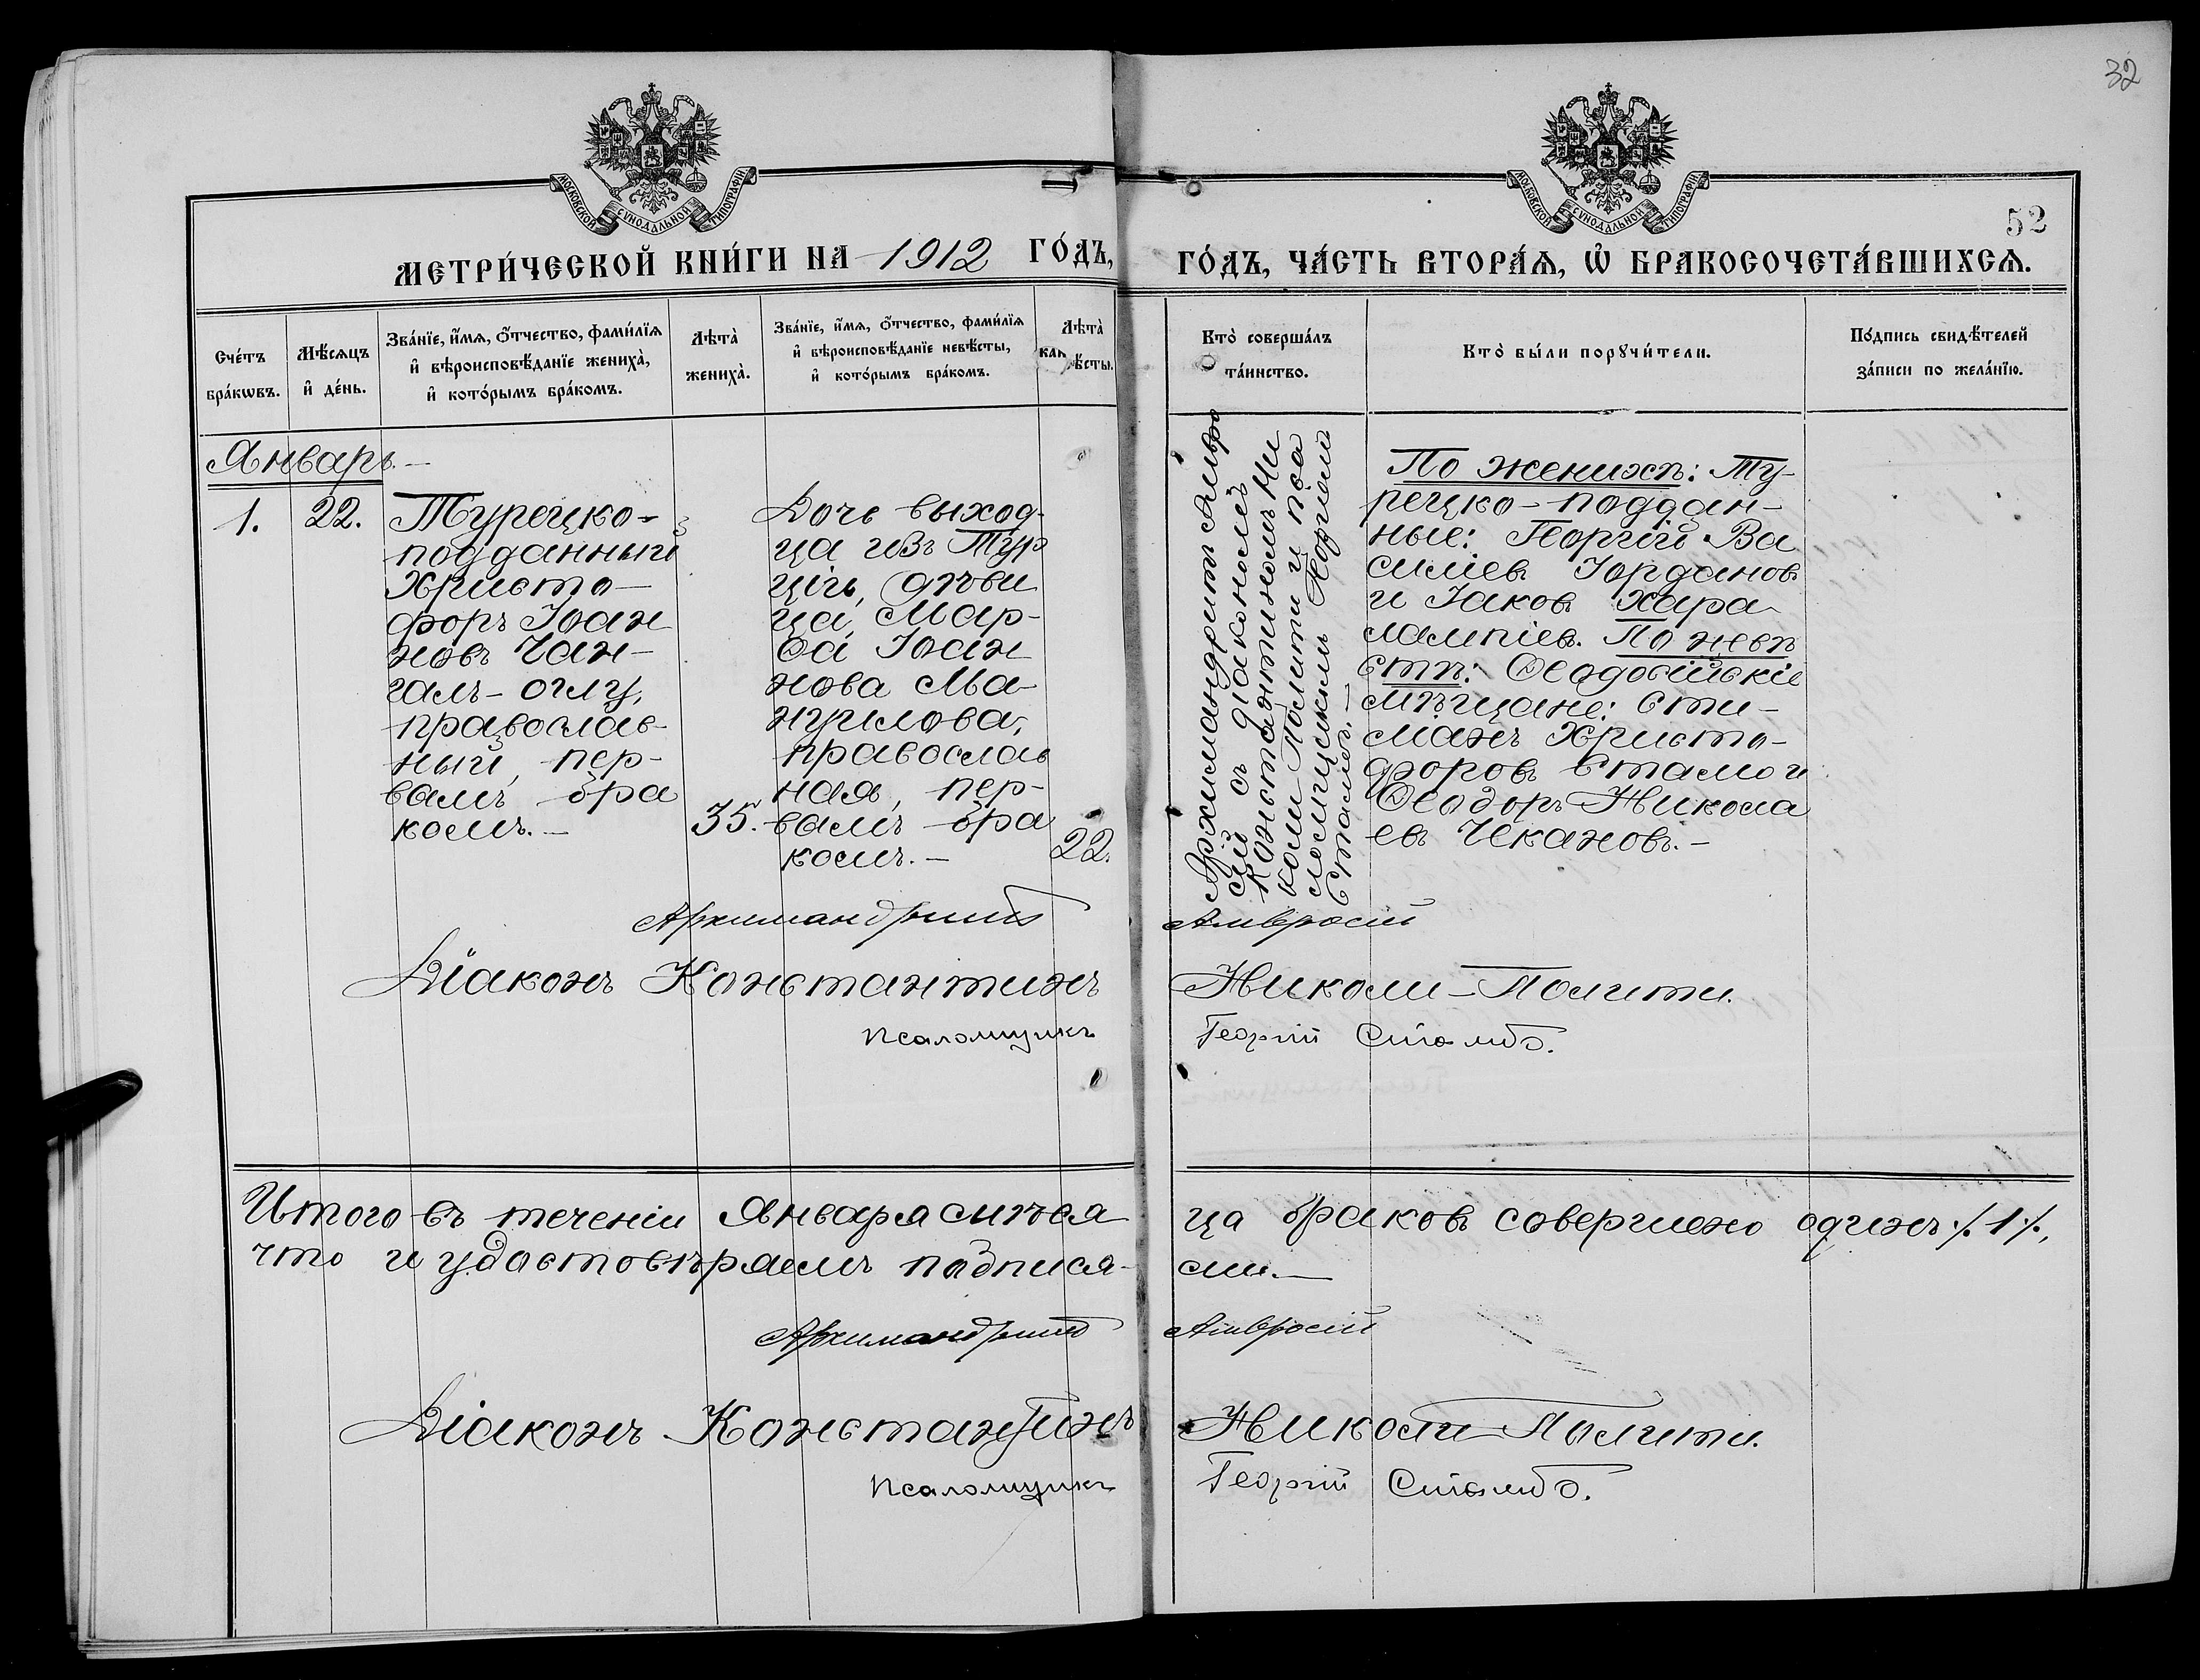 32
МОСКОВСКОЙ СУНОДАЛЬНОЙ ТИПОГРАФІИ
МОСКОВСКОЙ СУНОДАЛЬНОЙ ТИПОГРАФІИ
52
МЕТРИ́ЧЕСКОЙ КНИ́ГИ НА 1912 ГО́ДЪ,
ГО́ДЪ, ЧА́СТЬ ВТОРА́Ѧ, Ѡ҆ БРАКОСОЧЕТА́ВШИХСѦ.
Сче́тъ
бра́кѡвъ.
Мѣ́сяцъ
и҆ де́нь.
Зва́нїе, и҆́мѧ, ѻ҆́тчество, фами́лїѧ
и҆ вѣроисповѣ́данїе жениха̀,
и҆ кото́рымъ бра́комъ.
Лѣта̀
жениха̀.
Зва́нїе, и҆́мѧ, ѻ҆́тчество, фами́лїѧ
и҆ вѣроисповѣ́данїе невѣ́сты,
и҆ кото́рымъ бра́комъ.
Лѣта̀
ѣ́сты.
Кто̀ соверша́лъ
та́инство.
Кто̀ бы́ли порꙋчи́тели.
По́дпись свидѣ́телей
за́писи по жела́нїю.
Январь.—
1.
22.
Турецко-
подданный
Христо-
форъ Іоан
новъ Чан-
галъ-оглу,
православ-
ный, пер-
вымъ бра
комъ.—
35.
Дочь выход-
ца изъ Тур
ціи, дѣви
ца, Мар-
ѳа Іоан
нова Ма-
нуилова,
православ
ная, пер-
вымъ бра
комъ.—
22.
Архимандритъ Амвро
сій съ діакономъ
Константиномъ Ни
коли-Полити и пса
ломщикомъ Георгіемъ
Стамбо.—
По женихѣ: Ту-
рецко-поддан-
ные: Георгій Ва
силіев Іордановъ
и Іаков Хара-
лампіев. По невѣ
стѣ: Ѳеодосійскіе
мѣщане: Сти-
ліанъ Христо-
форовъ Стамо и
Ѳеодоръ Никола
евъ Чекановъ.—
Архимандритъ Амвросій
Діаконъ Константинъ Николи-Полити.
Псаломщикъ Георгій Стамбо.
Итого въ теченіи Января мѣся
ца браковъ совершено одинъ ⁒ 1 ⁒,
что и удостовѣряемъ подпися-
ми.—
Архимандритъ Амвросій
Діаконъ Константинъ Николи-Полити.
Псаломщикъ Георгій Стамбо.